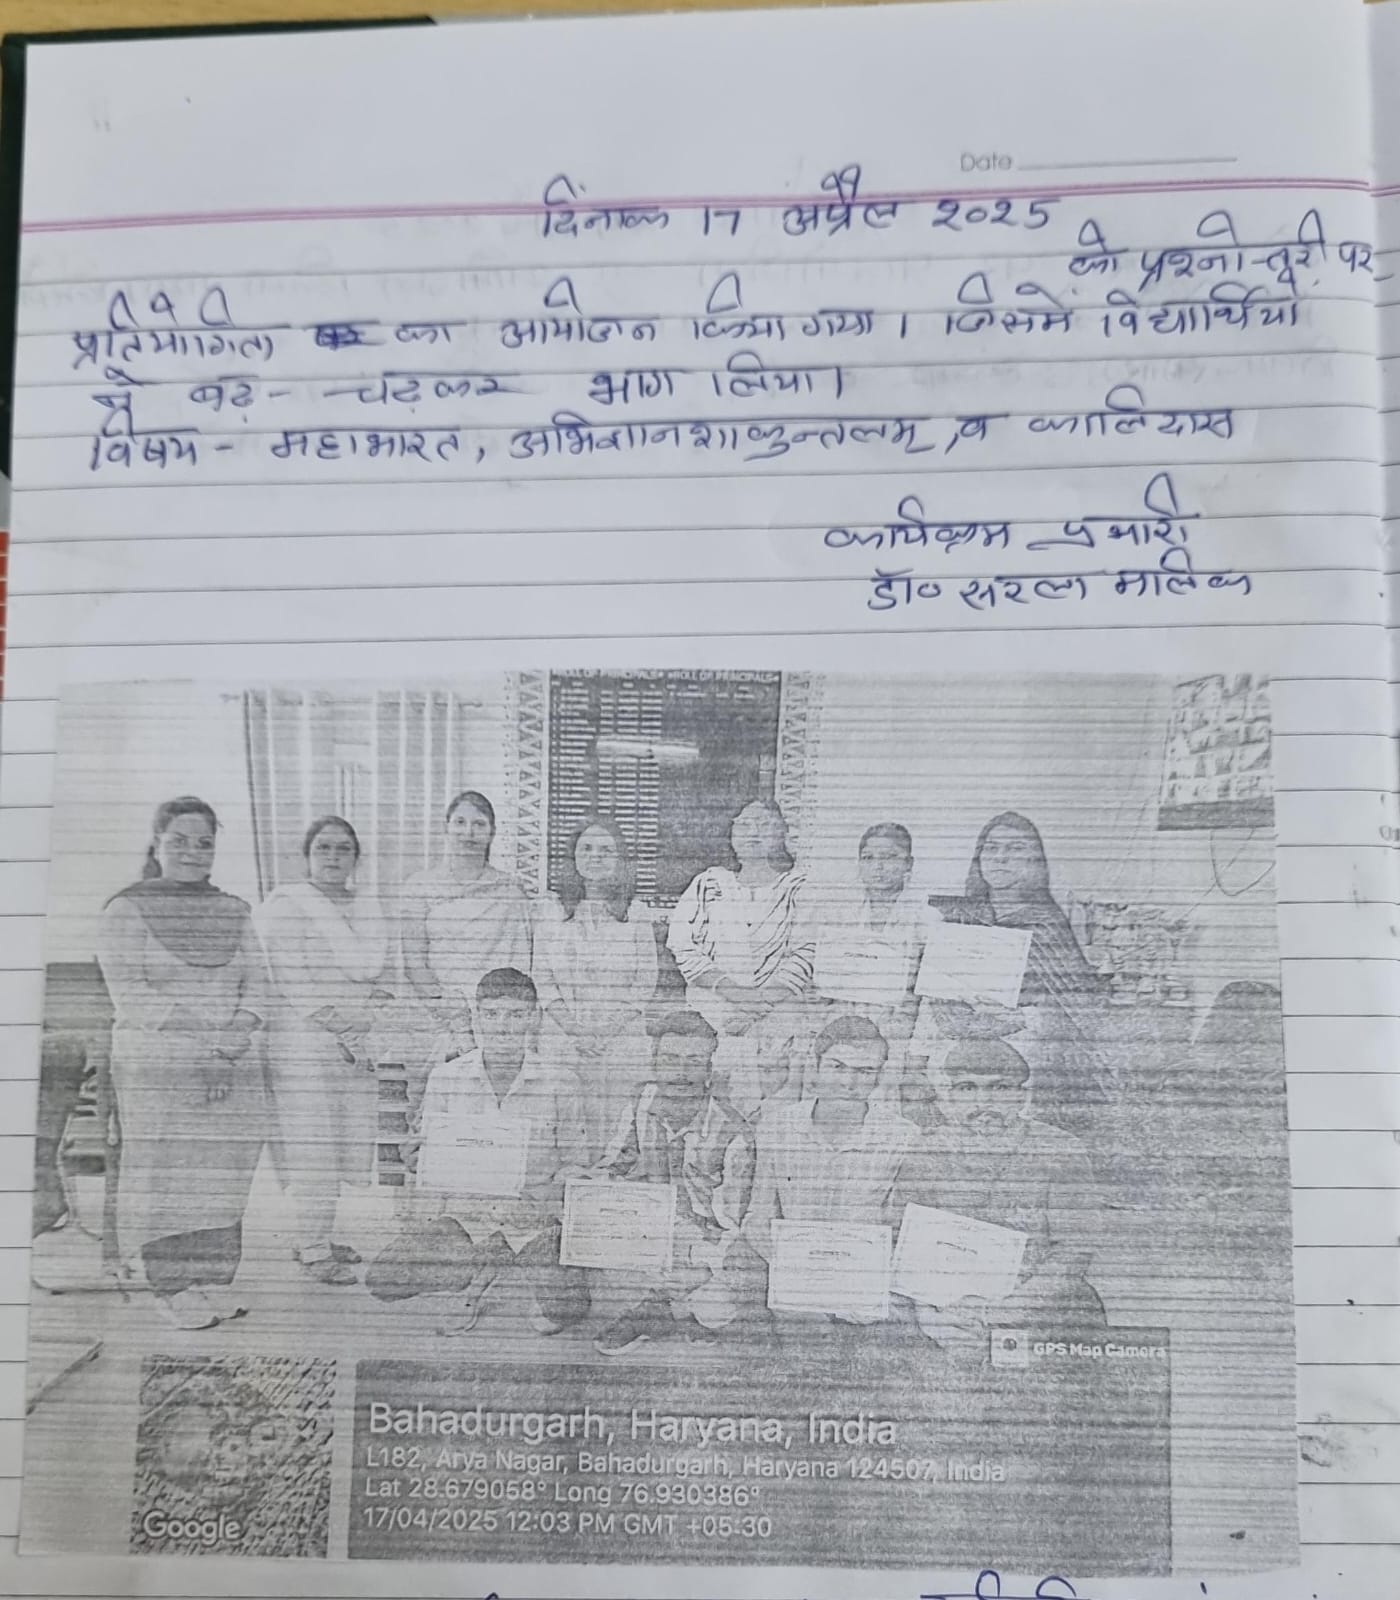 Date
दिनांक 17 अप्रैल 2025
को प्रश्नोत्तरी पर
प्रतियोगिता का आयोजन किया गया। जिसमें विद्यार्थियों
ने बढ़-चढ़कर भाग लिया।
विषय - महाभारत, अभिज्ञानशाकुन्तलम्, व कालिदास
कार्यक्रम प्रभारी
डॉ० सरला मलिक
ROLL OF PRINCIPALS
GPS Map Camera
Bahadurgarh, Haryana, India
L182, Arya Nagar, Bahadurgarh, Haryana 124507, India
Lat 28.679058° Long 76.930386°
17/04/2025 12:03 PM GMT +05:30
Google